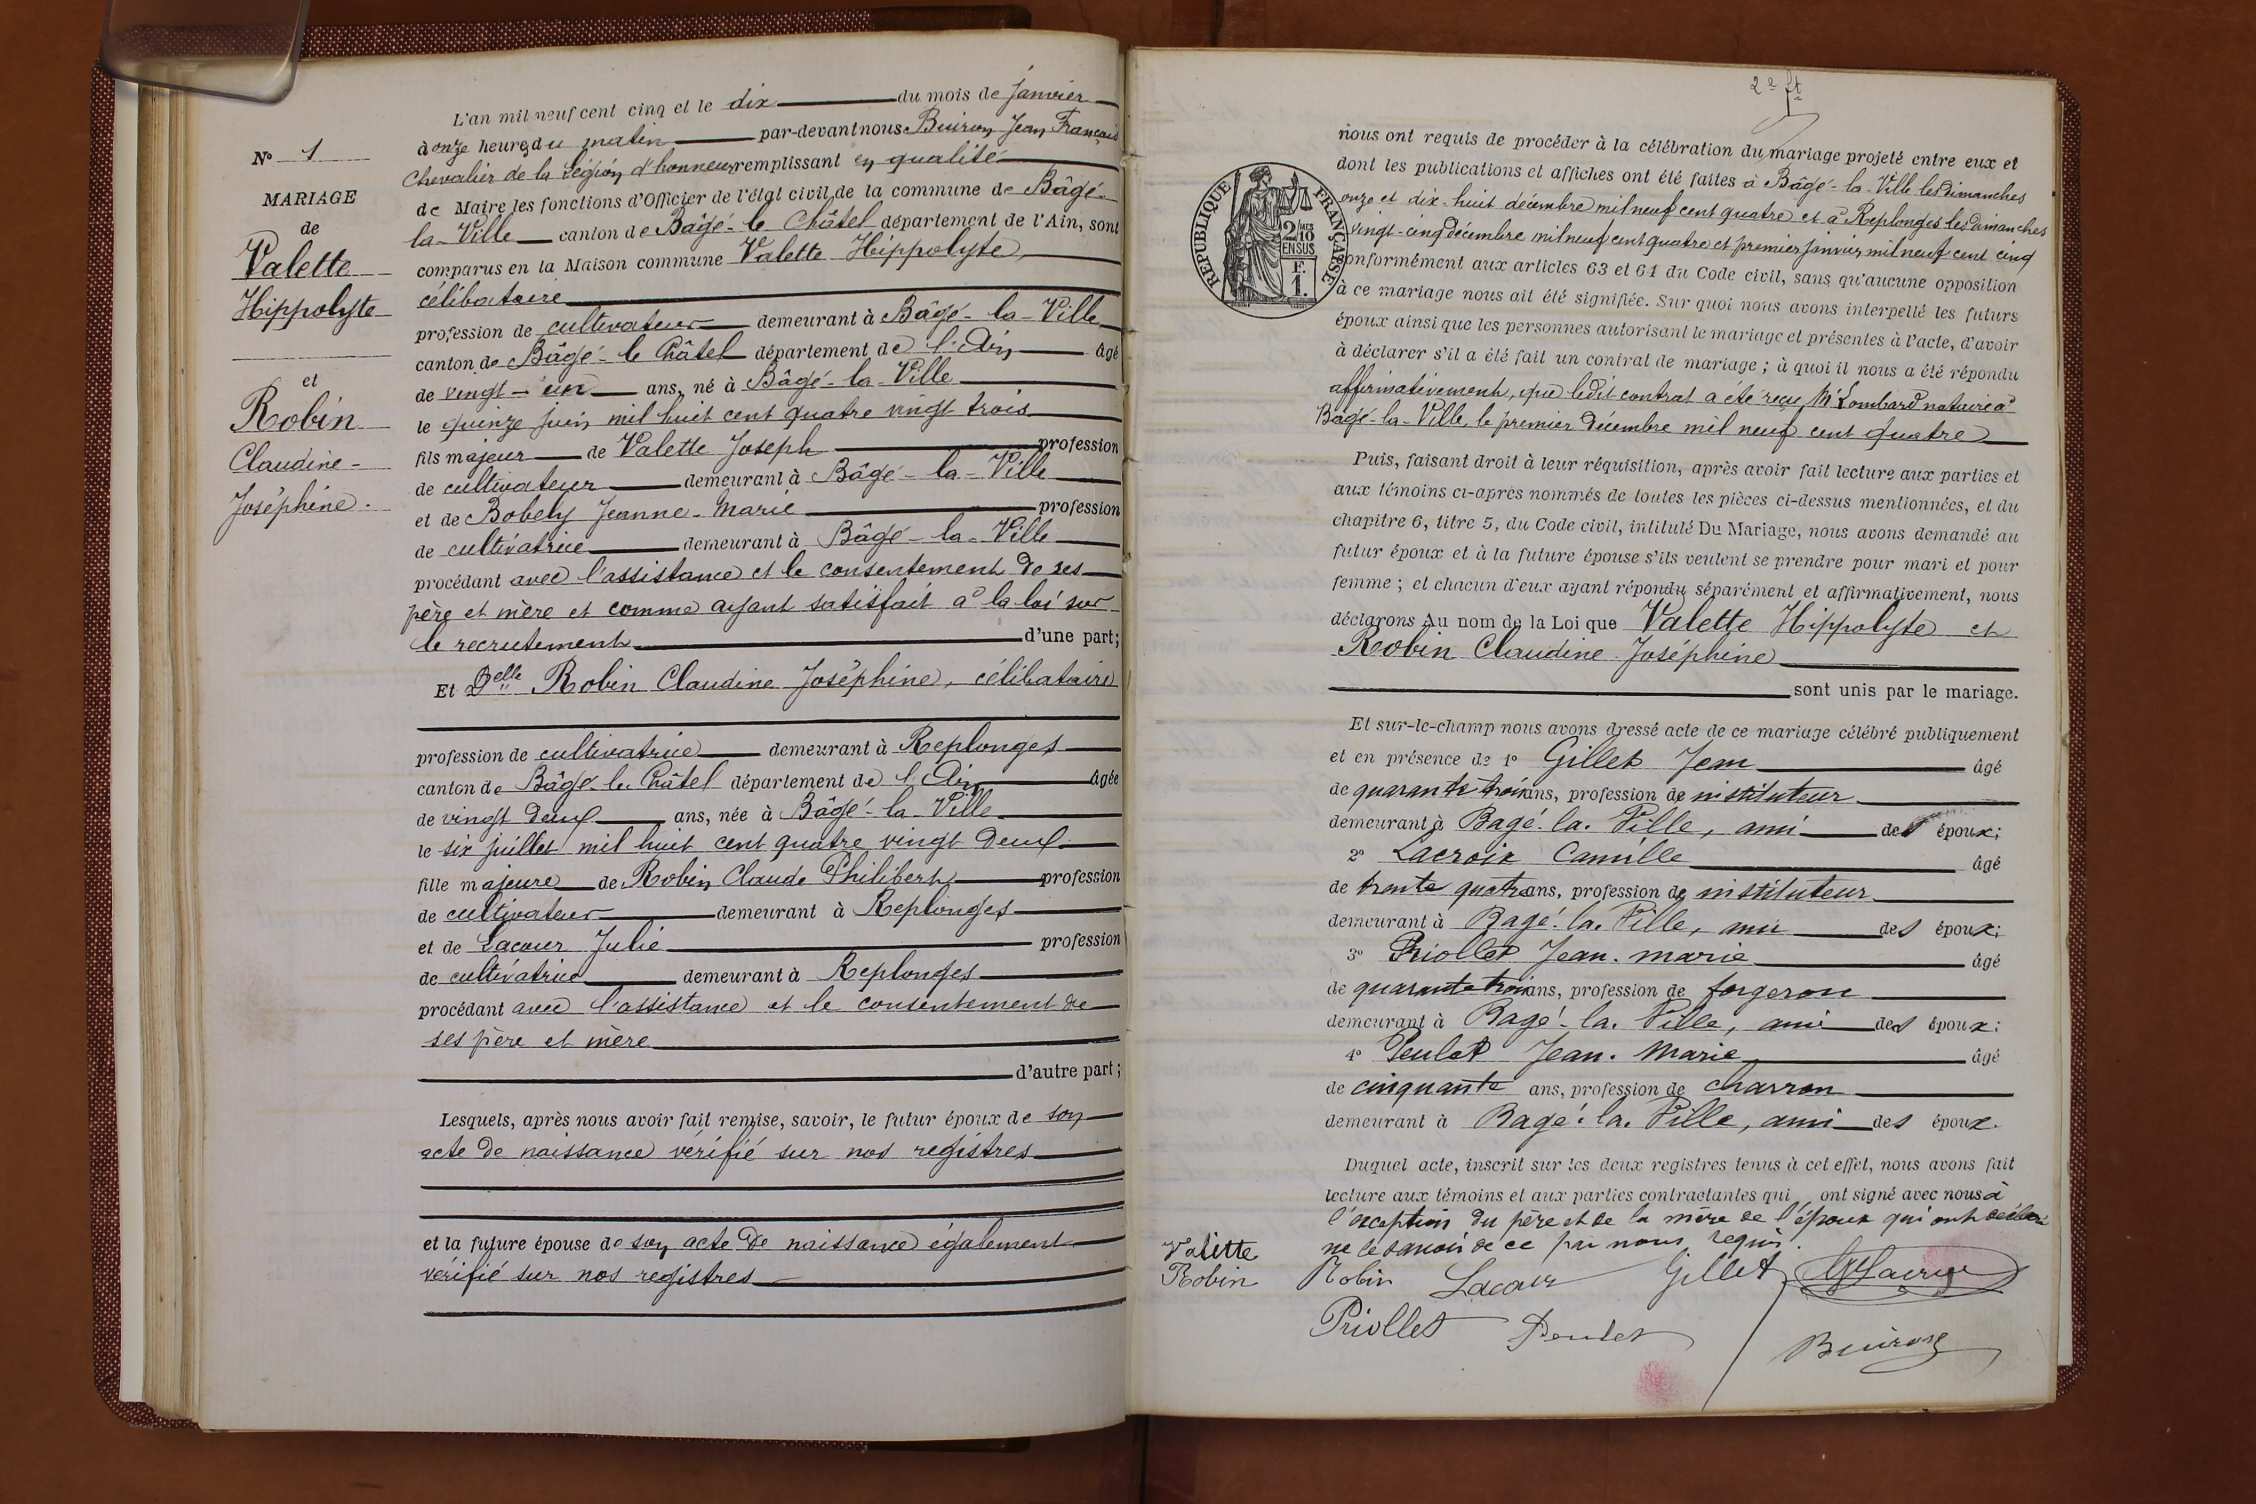 N° 1
MARIAGE
de
Valette
Hippolyte
et
Robin
Claudine-
Joséphine.
L'an mil neuf cent cinq et le dix du mois de janvier
à onze heures du matin par-devant nous Buiron Jean François
Chevalier de la Légion d'honneur remplissant en qualité
de Maire les fonctions d'Officier de l'état civil de la commune de Bâgé-
la-Ville canton de Bâgé-le Châtel département de l'Ain, sont
comparus en la Maison commune Valette Hippolyte,
célibataire
profession de cultivateur demeurant à Bâgé-la-Ville
canton de Bâgé-le Châtel département de l'Ain âgé
de vingt-un ans, né à Bâgé-la-Ville
le quinze juin mil huit cent quatre vingt trois
fils majeur de Valette Joseph profession
de cultivateur demeurant à Bâgé-la-Ville
et de Bobely Jeanne-Marie profession
de cultivatrice demeurant à Bâgé-la-Ville
procédant avec l'assistance et le consentement de ses
père et mère et comme ayant satisfait à la loi sur
le recrutement d'une part;
Et Delle Robin Claudine Joséphine, célibataire
profession de cultivatrice demeurant à Replonges
canton de Bâgé-le Châtel département de l'Ain âgée
de vingt deux ans, née à Bâgé-la-Ville
le six juillet mil huit cent quatre vingt deux
fille majeure de Robin Claude Philibert profession
de cultivateur demeurant à Replonges
et de Lacour Julie profession
de cultivatrice demeurant à Replonges
procédant avec l'assistance et le consentement de
ses père et mère
d'autre part;
Lesquels, après nous avoir fait remise, savoir, le futur époux de son
acte de naissance vérifié sur nos registres
et la future épouse de son acte de naissance également
vérifié sur nos registres
2e ft
RÉPUBLIQUE FRANÇAISE
2/10 MES
EN SUS
F.
1.
nous ont requis de procéder à la célébration du mariage projeté entre eux et
dont les publications et affiches ont été faites à Bâgé-la-Ville les dimanches
onze et dix-huit décembre mil neuf cent quatre et à Replonges les dimanches
vingt-cinq décembre mil neuf cent quatre et premier janvier mil neuf cent cinq
conformément aux articles 63 et 64 du Code civil, sans qu'aucune opposition
à ce mariage nous ait été signifiée. Sur quoi nous avons interpellé les futurs
époux ainsi que les personnes autorisant le mariage et présentes à l'acte, d'avoir
à déclarer s'il a été fait un contrat de mariage; à quoi il nous a été répondu
affirmativement, que ledit contrat a été reçu Me Lombard notaire à
Bagé-la-Ville, le premier décembre mil neuf cent quatre
Puis, faisant droit à leur réquisition, après avoir fait lecture aux parties et
aux témoins ci-après nommés de toutes les pièces ci-dessus mentionnées, et du
chapitre 6, titre 5, du Code civil, intitulé Du Mariage, nous avons demandé au
futur époux et à la future épouse s'ils veulent se prendre pour mari et pour
femme; et chacun d'eux ayant répondu séparément et affirmativement, nous
déclarons Au nom de la Loi que Valette Hippolyte et
Robin Claudine Joséphine
sont unis par le mariage.
Et sur-le-champ nous avons dressé acte de ce mariage célébré publiquement
et en présence de 1° Gillet Jean âgé
de quarante trois ans, profession de instituteur
demeurant à Bagé-la-Ville, ami des époux;
2° Lacroix Camille âgé
de trente quatre ans, profession de instituteur
demeurant à Bagé-la-Ville, ami des époux;
3° Priollet Jean-Marie âgé
de quarante trois ans, profession de forgeron
demeurant à Bagé-la-Ville, ami des époux;
4° Peulet Jean-Marie âgé
de cinquante ans, profession de charron
demeurant à Bagé-la-Ville, ami des époux.
Duquel acte, inscrit sur les deux registres tenus à cet effet, nous avons fait
lecture aux témoins et aux parties contractantes qui ont signé avec nous à
l'exception du père et de la mère de l'époux qui ont déclaré
ne le savoir de ce par nous requis.
Valette
Robin Robin Lacour Gillet Lacroix
Priollet Peulet Buiron